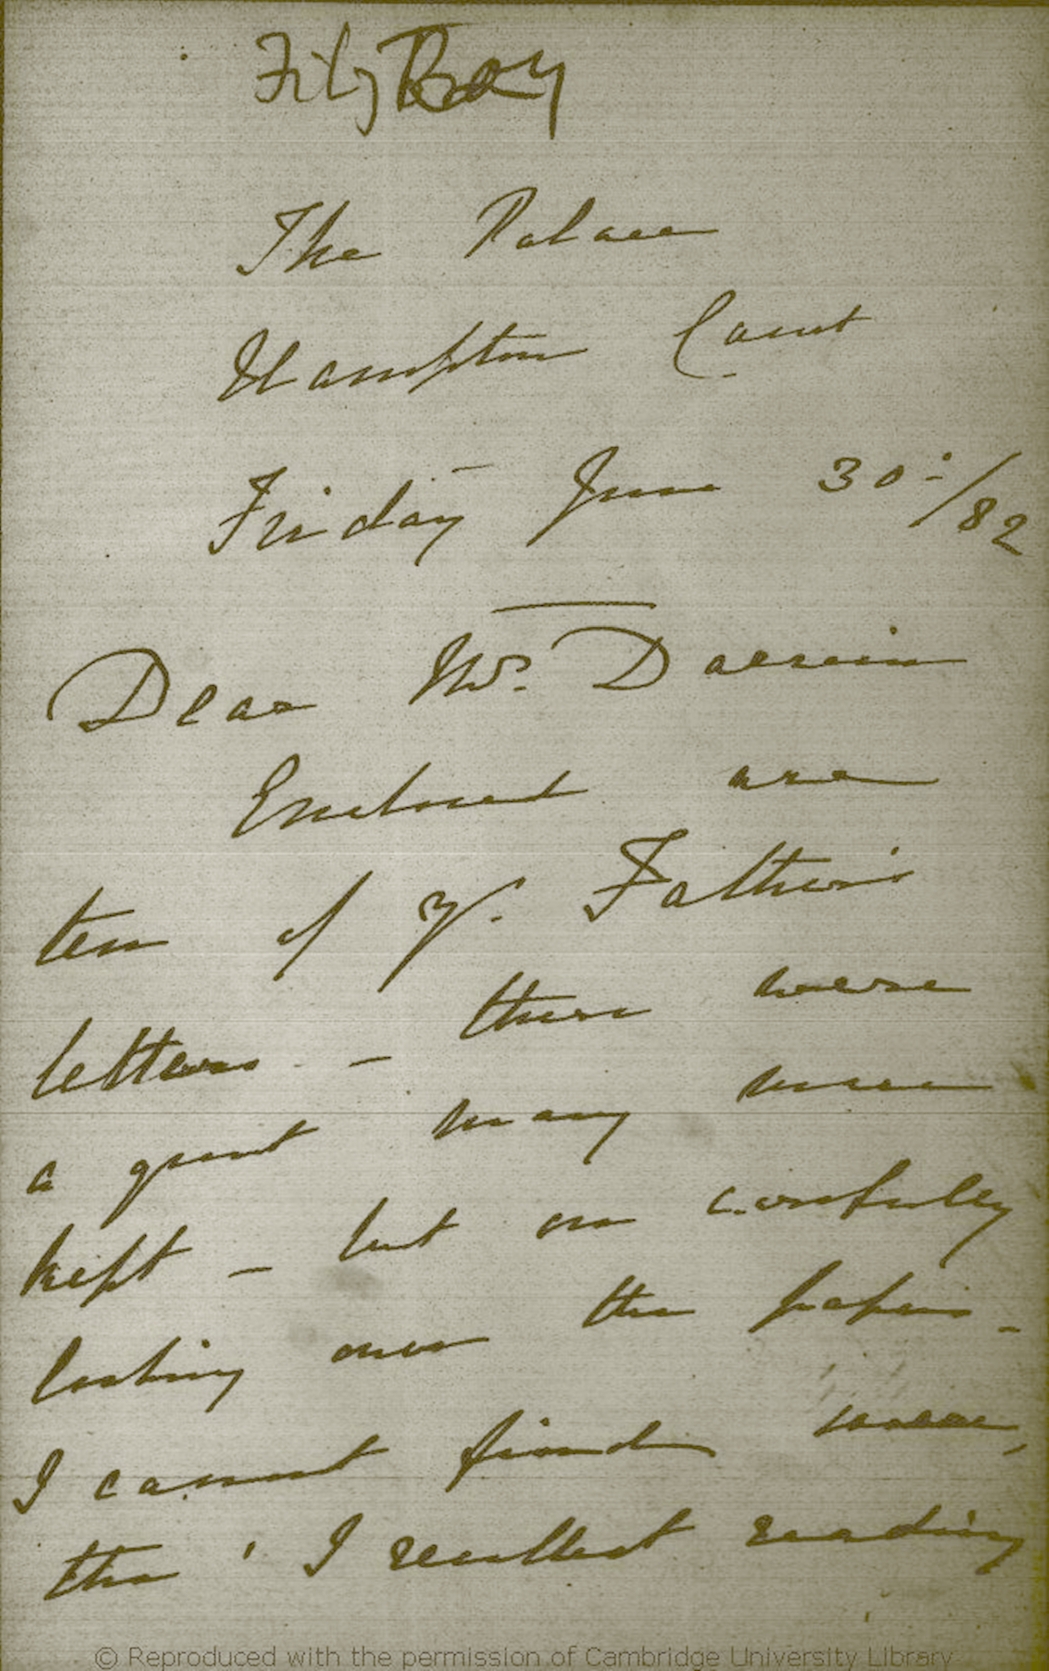 FitzRoy
The Palace
Hampton Court
Friday June 30th/82
Dear Mr. Darwin
Enclosed are
ten of yr. Father's
letters – there were
a great many more
kept – but on carefully
looking over the papers –
I cannot find more,
tho' I recollect reading
© Reproduced with the permission of Cambridge University Library